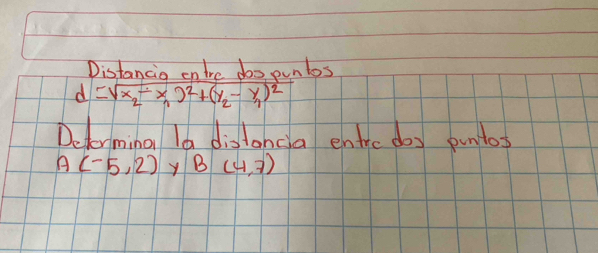 Distancia entre dos puntos
d=√x₂-x₁)²+(y₂-y₁)²
Determina la distancia entre dos puntos
A(-5,2) y B (4,7)